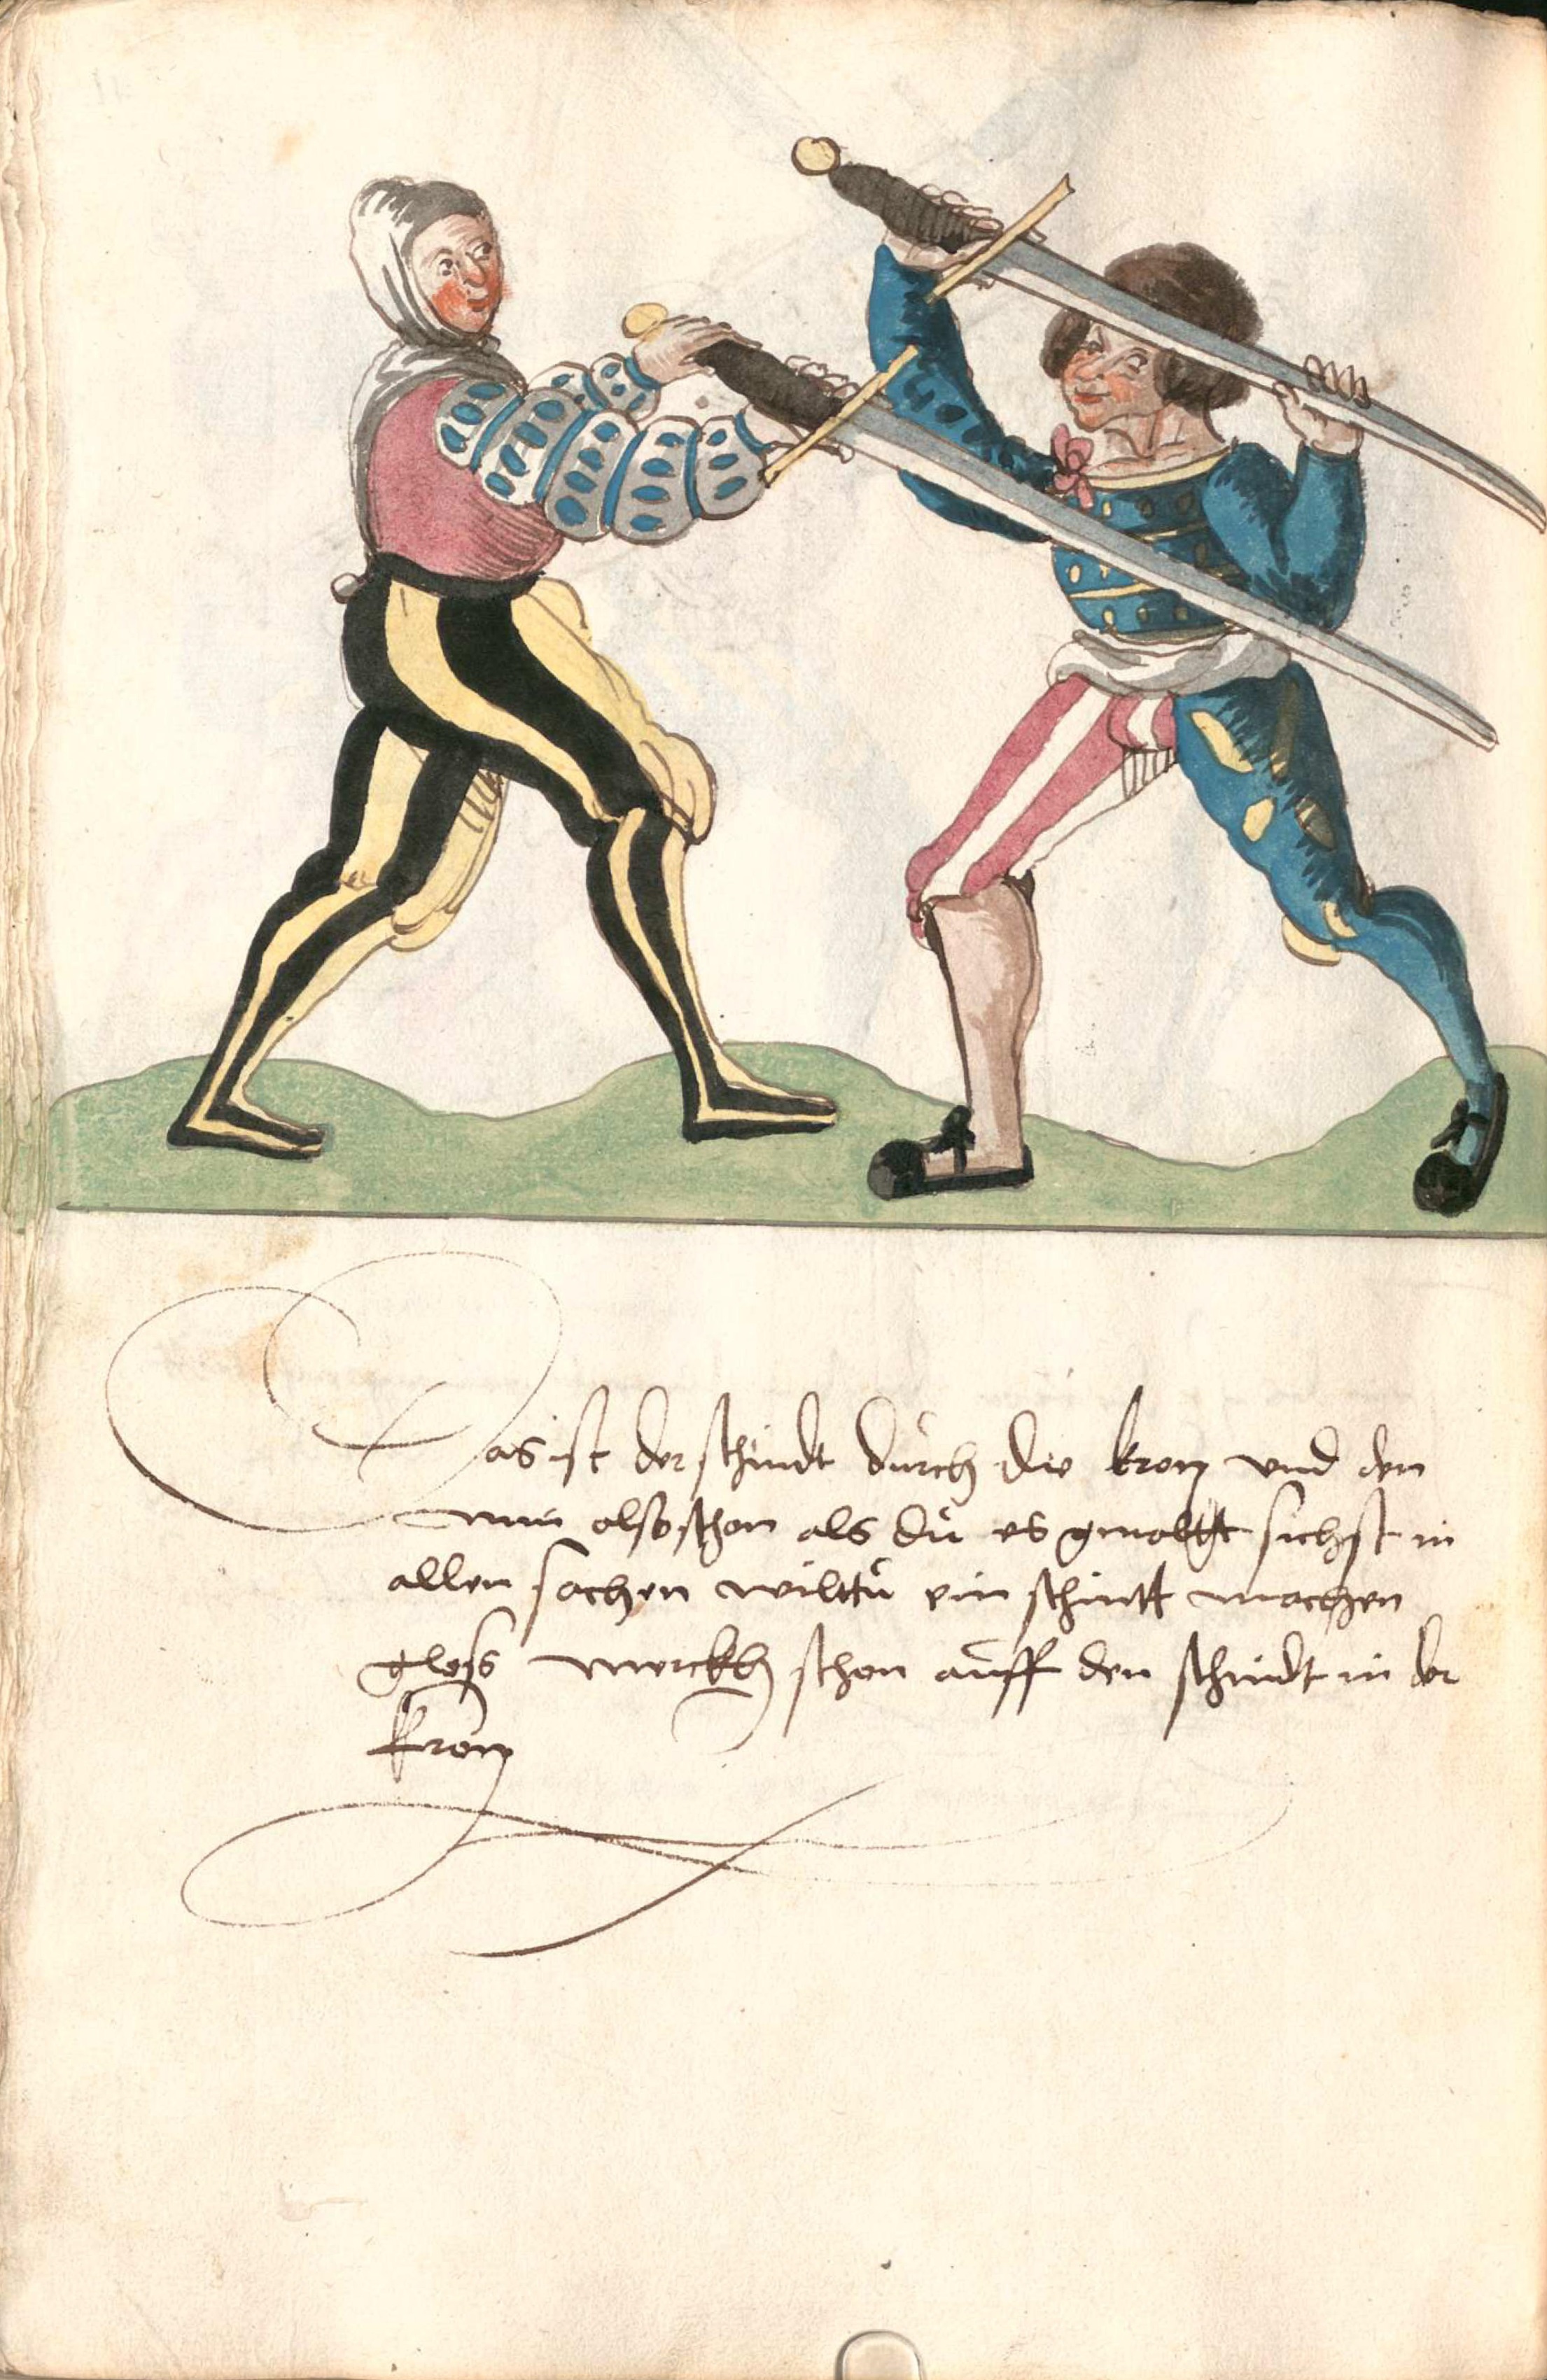 Das ist der schnidt durch die kron und den
nim also schon als du es gmaltt sichst in
allen sachen wilttu ein schnitt machen
gloss merckh schon auff den schnidt in der
kron